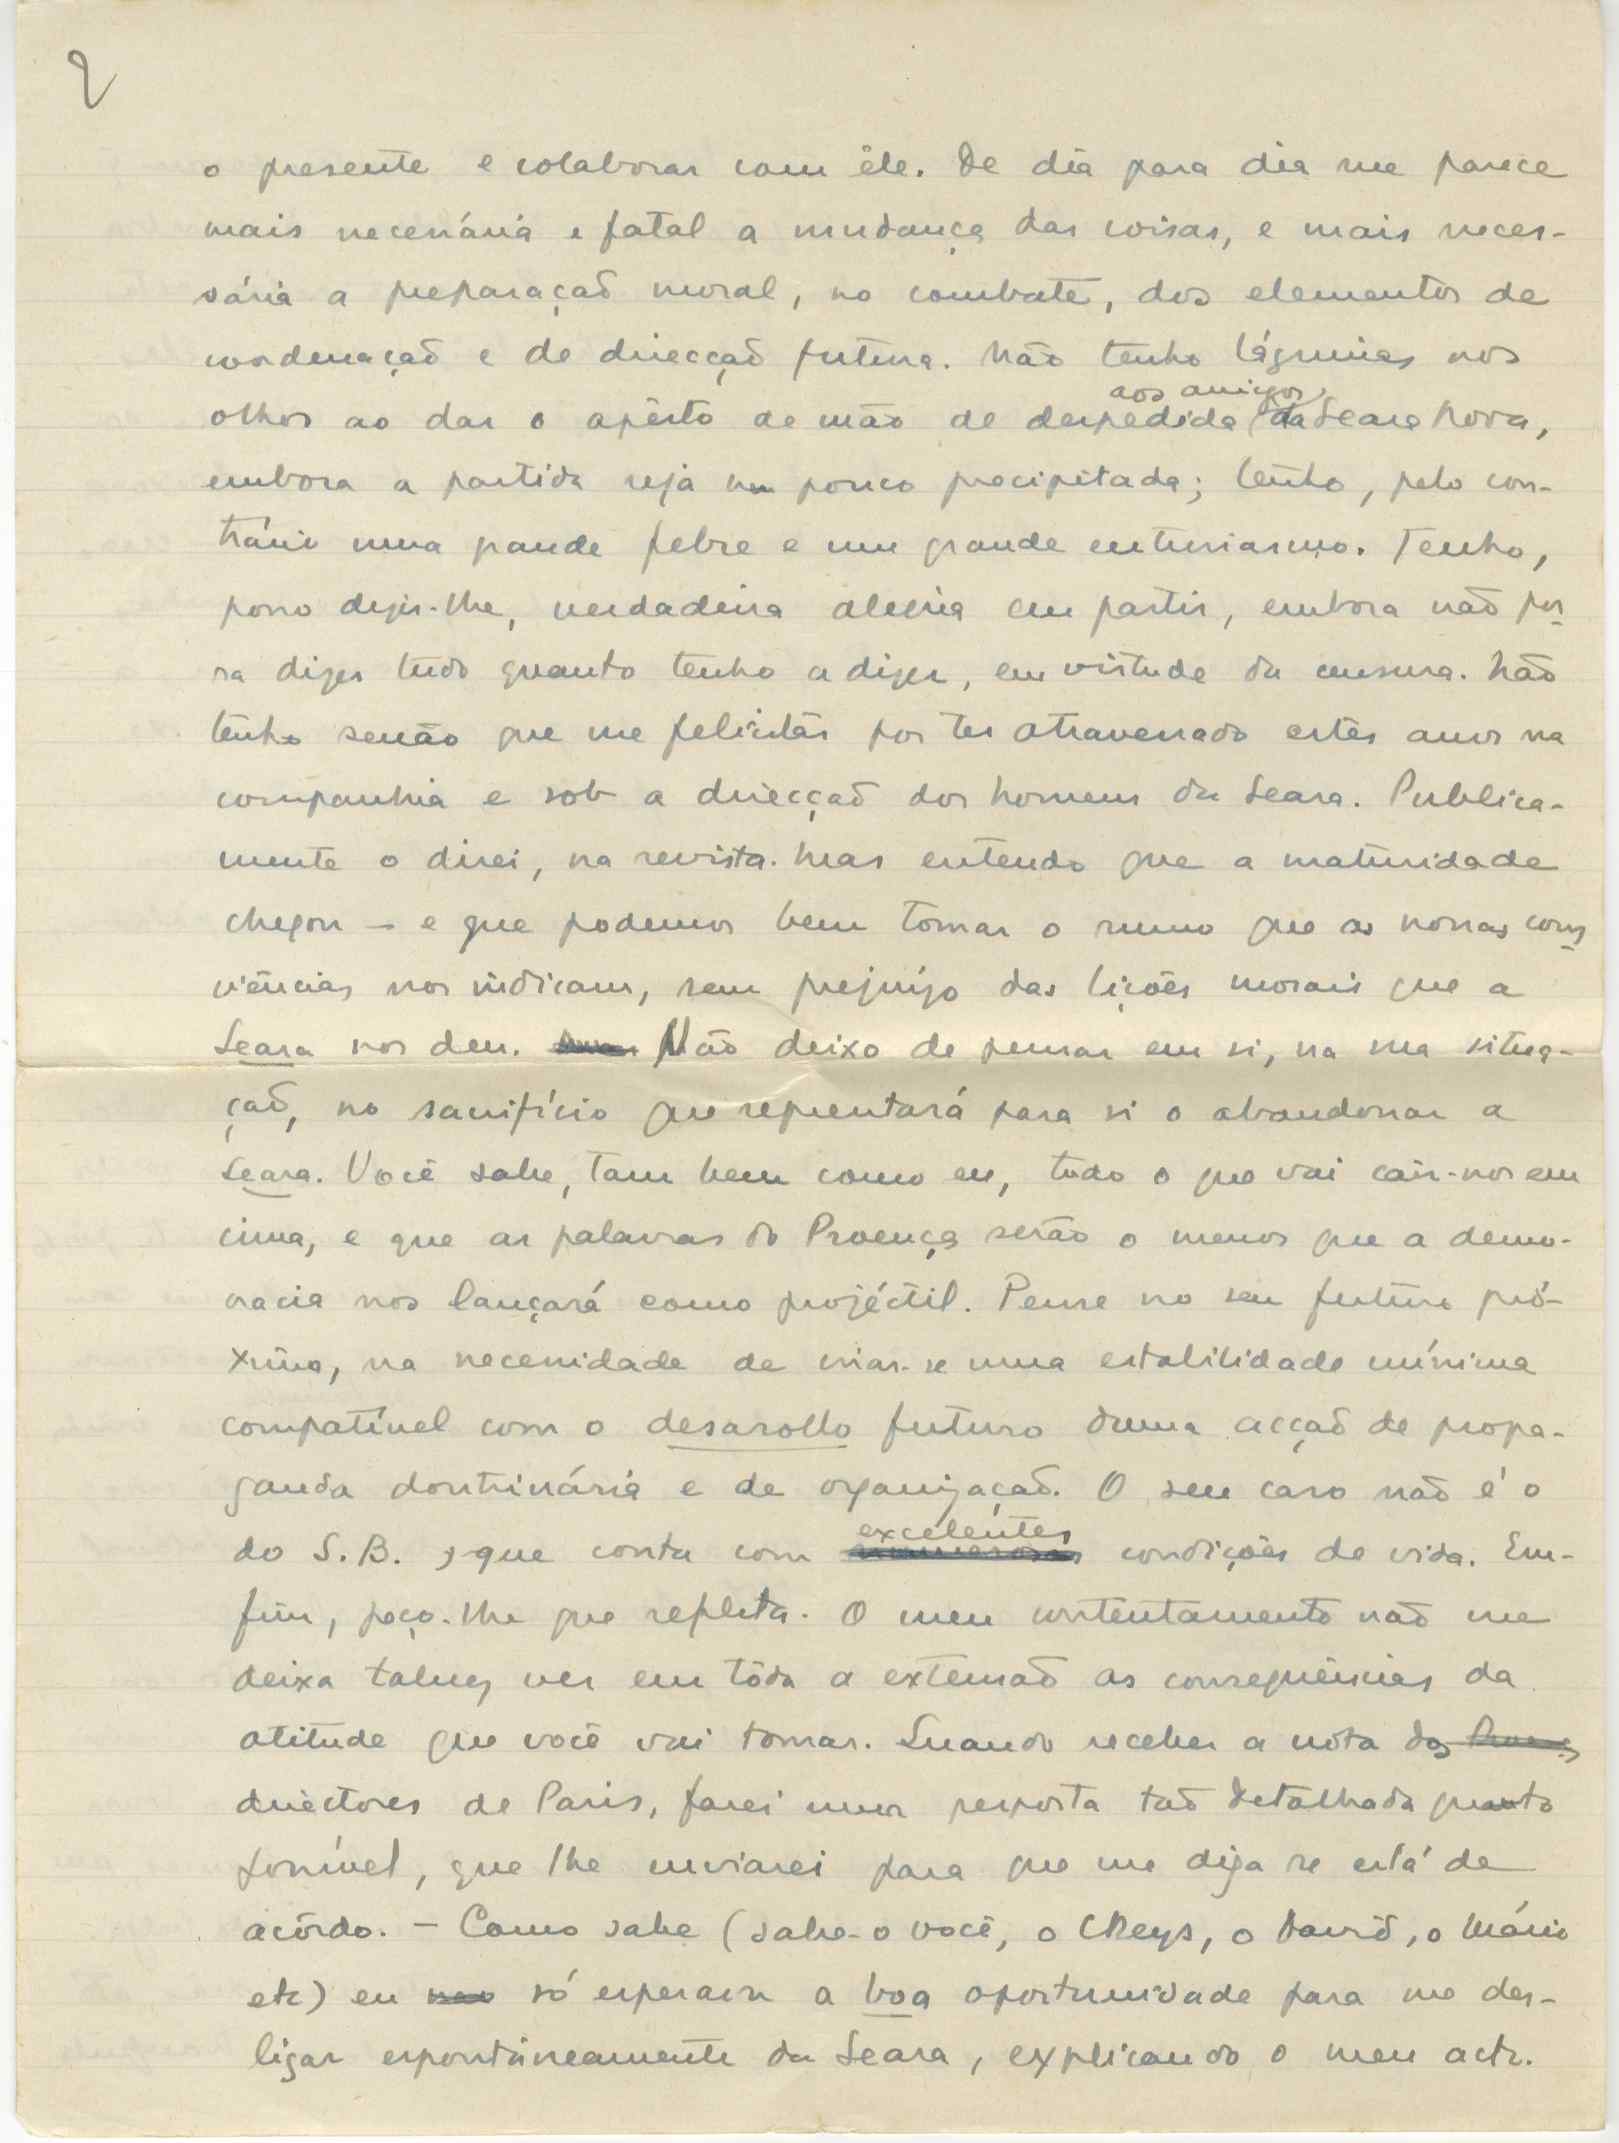 2
o presente e colaborar com êle. De dia para dia me parece
mais necessária e fatal a mudança das coisas, e mais neces-
sária a preparação moral, no combate, dos elementos de
coordenação e de direcção futura. Não tenho lágrimas nos
olhos ao dar o apêrto de mão de despedida aos amigos da Seara Nova,
embora a partida seja um pouco precipitada; tenho, pelo con-
trário uma grande febre e um grande entusiasmo. Tenho,
posso dizer-lhe, verdadeira alegria em partir, embora não pos
sa dizer tudo quanto tenho a dizer, em virtude da censura. Não
tenho senão que me felicitar por ter atravessado estes anos na
companhia e sob a direcção dos homens da Seara. Publica-
mente o direi, na revista. Mas entendo que a maturidade
chegou – e que podemos bem tomar o rumo que as nossas cons
ciências nos indicam, sem prejuízo das lições morais que a
Seara nos deu. Não deixo de pensar em si, na sua situa-
ção, no sacrifício que representará para si o abandonar a
Seara. Você sabe, tam bem como eu, tudo o que vai cair-nos em
cima, e que as palavras do Proença serão o menos que a demo-
cracia nos lançará como projéctil. Pense no seu futuro pró-
ximo, na necessidade de criar-se uma estabilidade mínima
compatível com o desarollo futuro duma acção de propa-
ganda doutrinária e de organização. O seu caso não é o
do S.B., que conta com excelentes condições de vida. Em-
fim, peço-lhe que reflita. O meu contentamento não me
deixa talvez ver em tôda a extensão as conseqüências da
atitude que você vai tomar. Quando receber a nota dos
directores de Paris, farei uma resposta tão detalhada quanto
possível, que lhe enviarei para que me diga se está de
acôrdo. – Como sabe (sabe-o você, o Reys, o David, o Mário
etc) eu só esperava a boa oportunidade para me des-
ligar espontâneamente da Seara, explicando o meu acto.